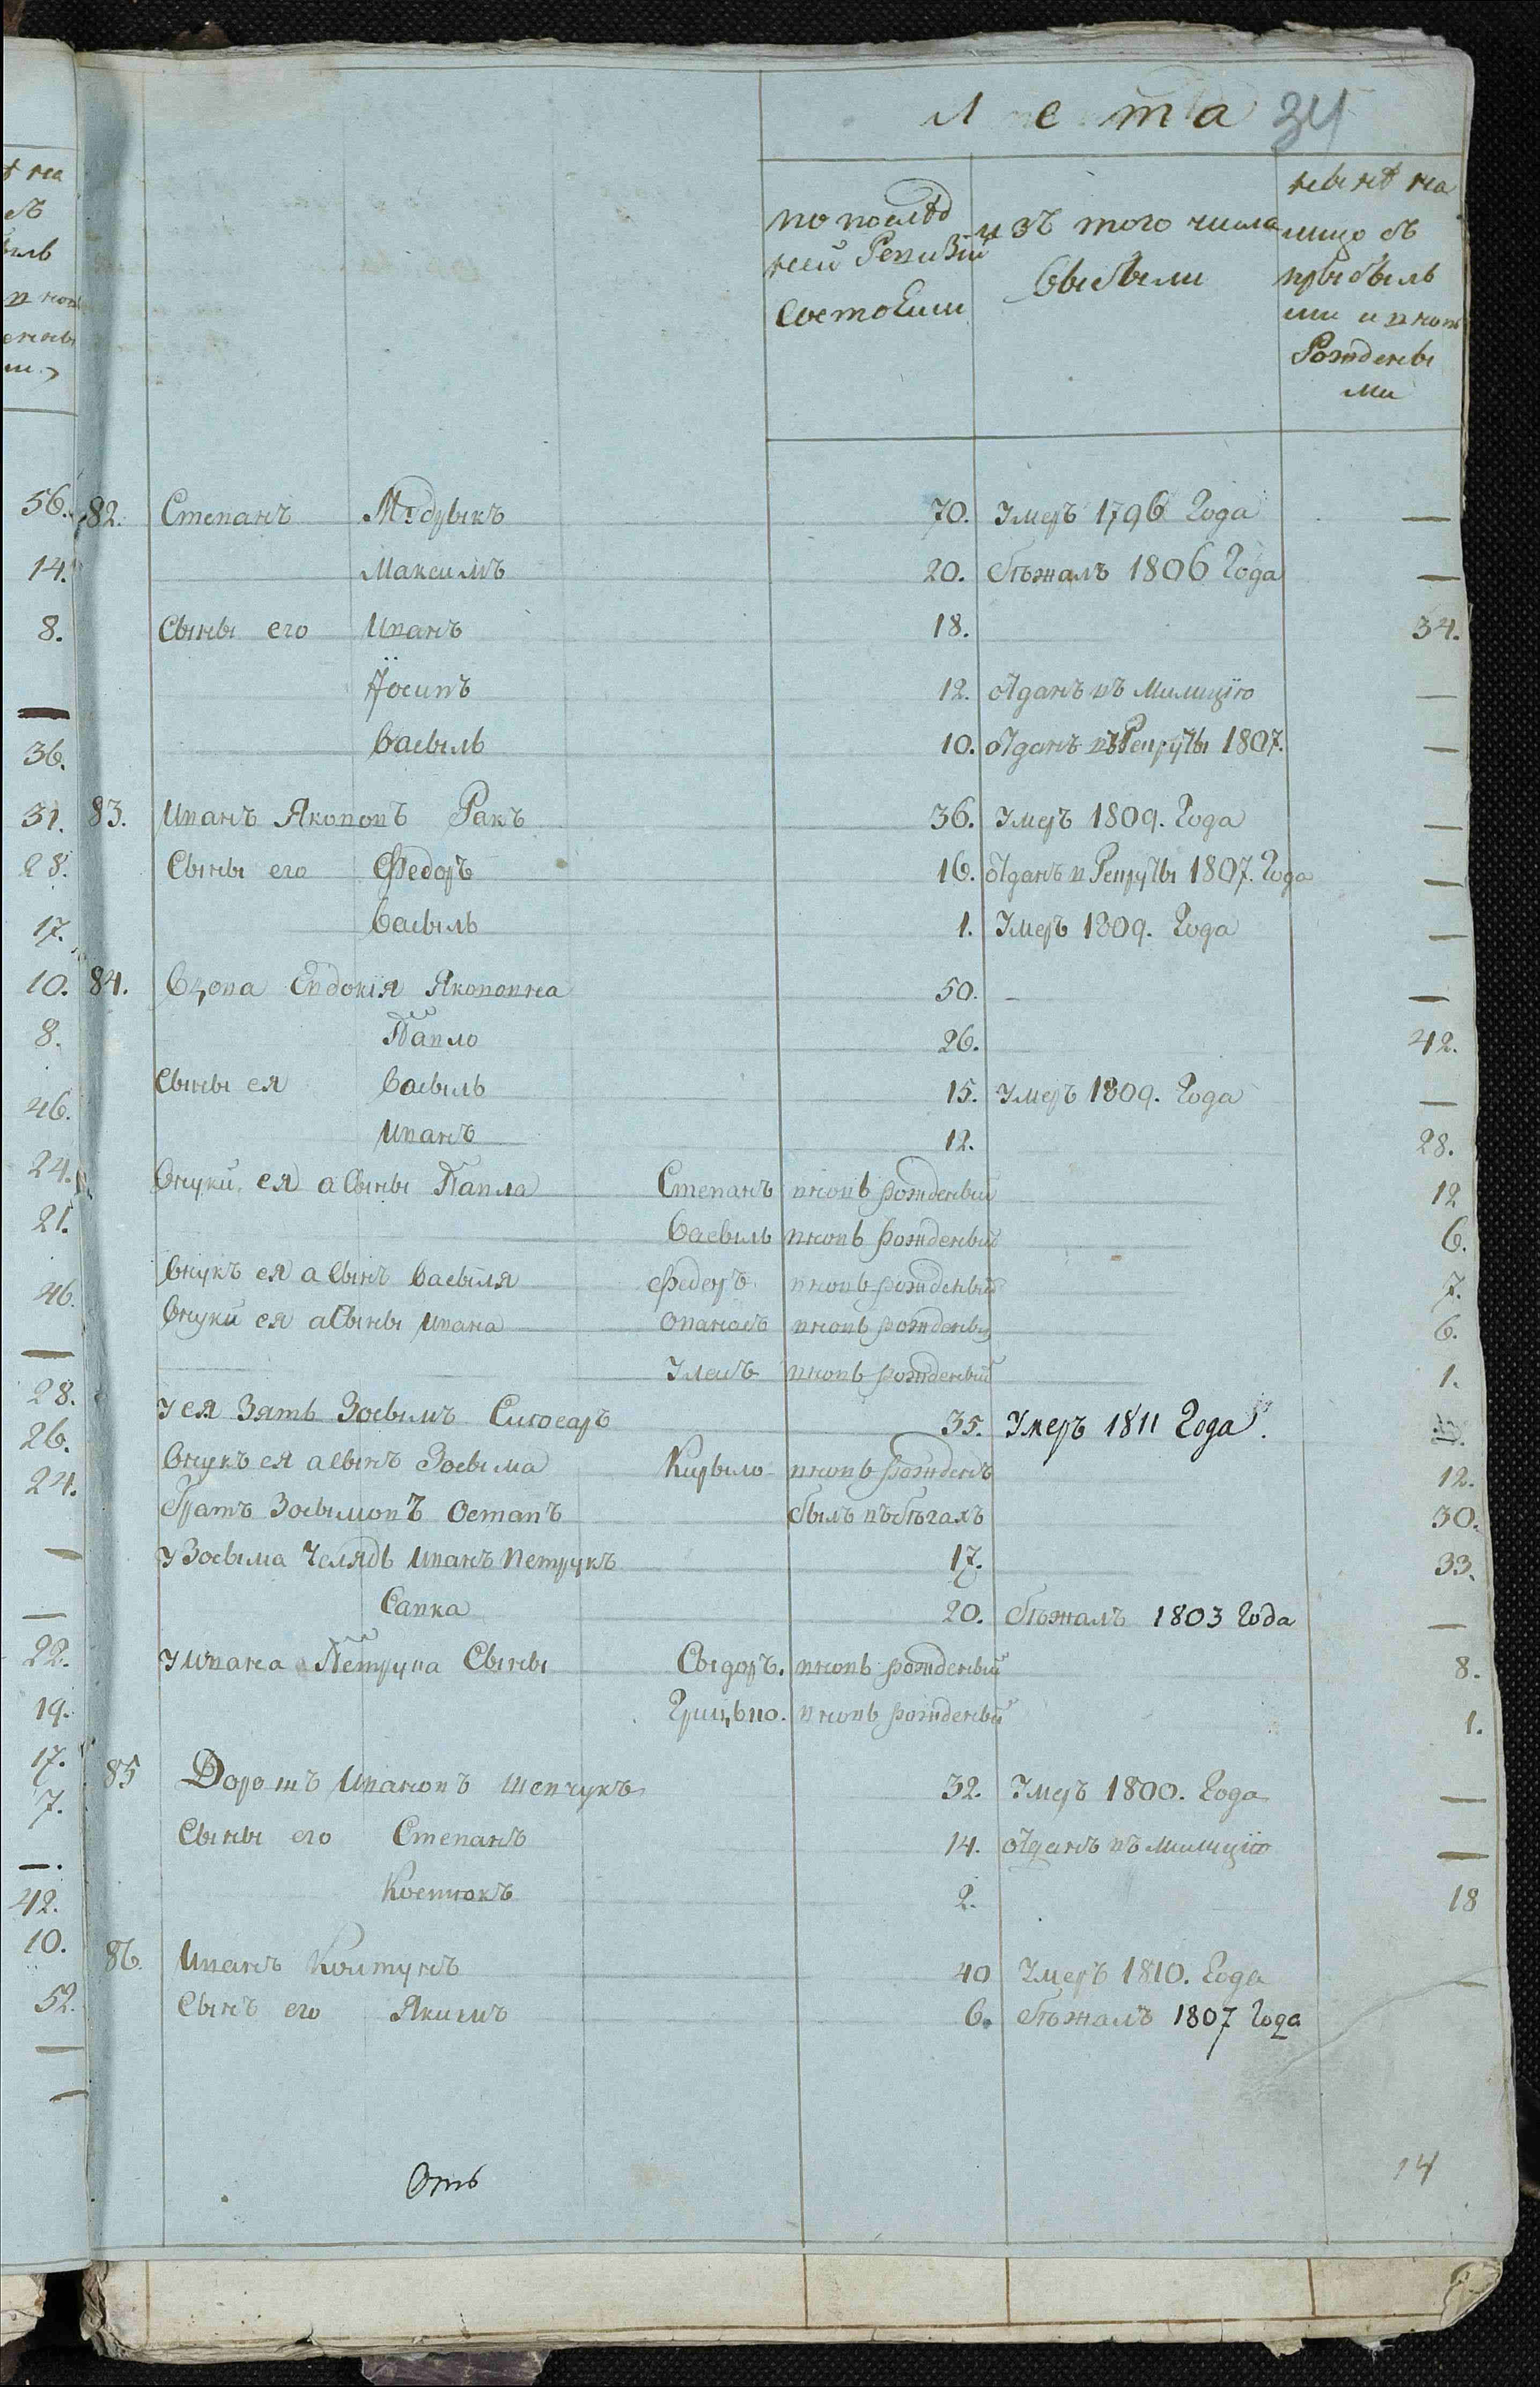 лета 34
по послѣд
ней Ревизiи
состоЕлли
изъ того числа
выбыли
нынѣ на
лицо съ
прыбыль
ми и вновь
Рожденны
ми
82. Степанъ Мѣдвыкъ 70. Умеръ 1796 Года —
Максимъ 20. бѣжалъ 1806 Года —
Сыны его Иванъ 18. 34.
Йосипъ 12. отданъ въ Милицiю —
Васыль 10. отданъ въ Рекруты 1807. —
83. Иванъ Якововъ Ракъ 36. Умеръ 1809. Года —
Сыны его Федоръ 16. отданъ в Рекруты 1807. Года —
Васыль 1. Умеръ 1809. Года —
84. Вдова Евдокiя Якововна 50. — —
Павло 26. 42.
Сыны ея Васыль 15. Умеръ 1809. Года —
Иванъ 12. 28.
Внуки ея а Сыны Павла Степанъ вновь рожденный 12
Васыль вновь рожденный 6.
Внукъ ея а Сынъ Васыля Федоръ вновь рожденный 7.
Внуки ея а Сыны Ивана Опанасъ вновь рожденый 6.
Уласъ вновь рожденый 1.
У ея Зять Зосымъ Слюсаръ 35. Умеръ 1811 Года.
Внукъ ея а сынъ Зосыма Кирыло вновь рожденъ 12.
Братъ Зосымовъ Остапъ былъ въ бѣгахъ 30.
У Зосыма Челядь Иванъ Петрукъ 17. 33.
Савка 20. бѣжалъ 1803 Года —
У Ивана Петрука Сыны Сыдоръ. вновь рожденый 8.
Грицько. вновь рожденый 1.
85 Дорошъ Ивановъ Шевчукъ 32. Умеръ 1800. Года —
Сыны его Степанъ 14. отданъ въ милицiю —
Костюкъ 2. 18
86. Иванъ Ковтунъ 40 Умеръ 1810. Года —
Сынъ его Якимъ 6. бѣжалъ 1807 Года
14
56.
14.
8.
—
36.
31.
28.
17.
10.
8.
46.
24.
21.
46.
—
28.
26.
24.
—
—
22.
19.
17.
7.
—.
42.
10.
52.
—
—